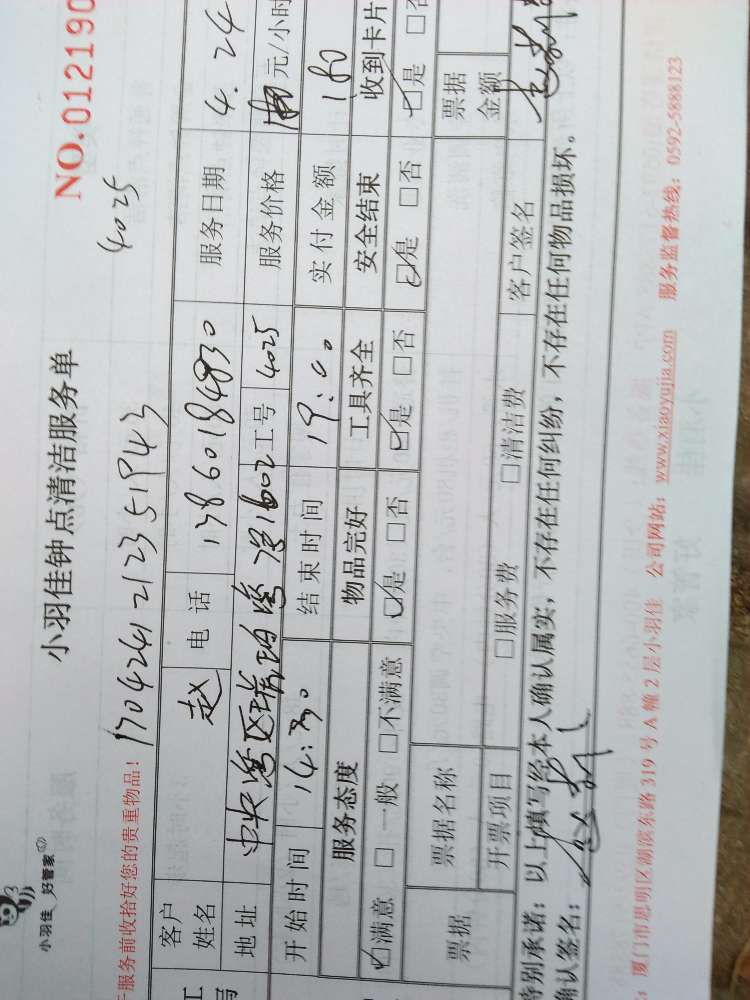 小羽佳 好管家
小羽佳钟点清洁服务单
NO.0121903
服务前收拾好您的贵重物品! 1704241212351943
4025
客户姓名 赵 电话 13860184830 服务日期 4.24
地址 中央湾区 1602 工号 4025 服务价格 元/小时
开始时间 14:30 结束时间 19:00 实付金额 180
服务态度 物品完好 工具齐全 安全结束 收到卡片
☑满意 □一般 □不满意 ☑是 □否 ☑是 □否 ☑是 □否 ☑是
票据 票据名称 票据金额
开票项目 □服务费 □清洁费 客户签名
特别承诺:以上填写经本人确认属实,不存在任何纠纷,不存在任何物品损坏。
确认签名:
:厦门市思明区湖滨东路 319 号 A 幢 2 层小羽佳 公司网站:www.xiaoyujia.com 服务监督热线:0592-5888123